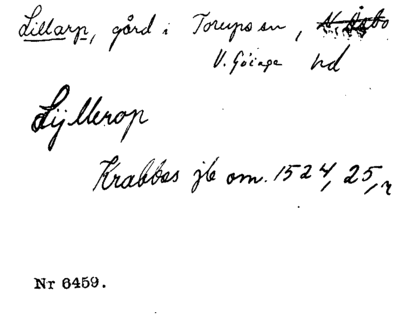 Lillarp, gård i Torups sn, N. Åsbo
V. Göinge hd
Lijllerop
Krabbes jb om. 1524, 25, r
Nr 6459.